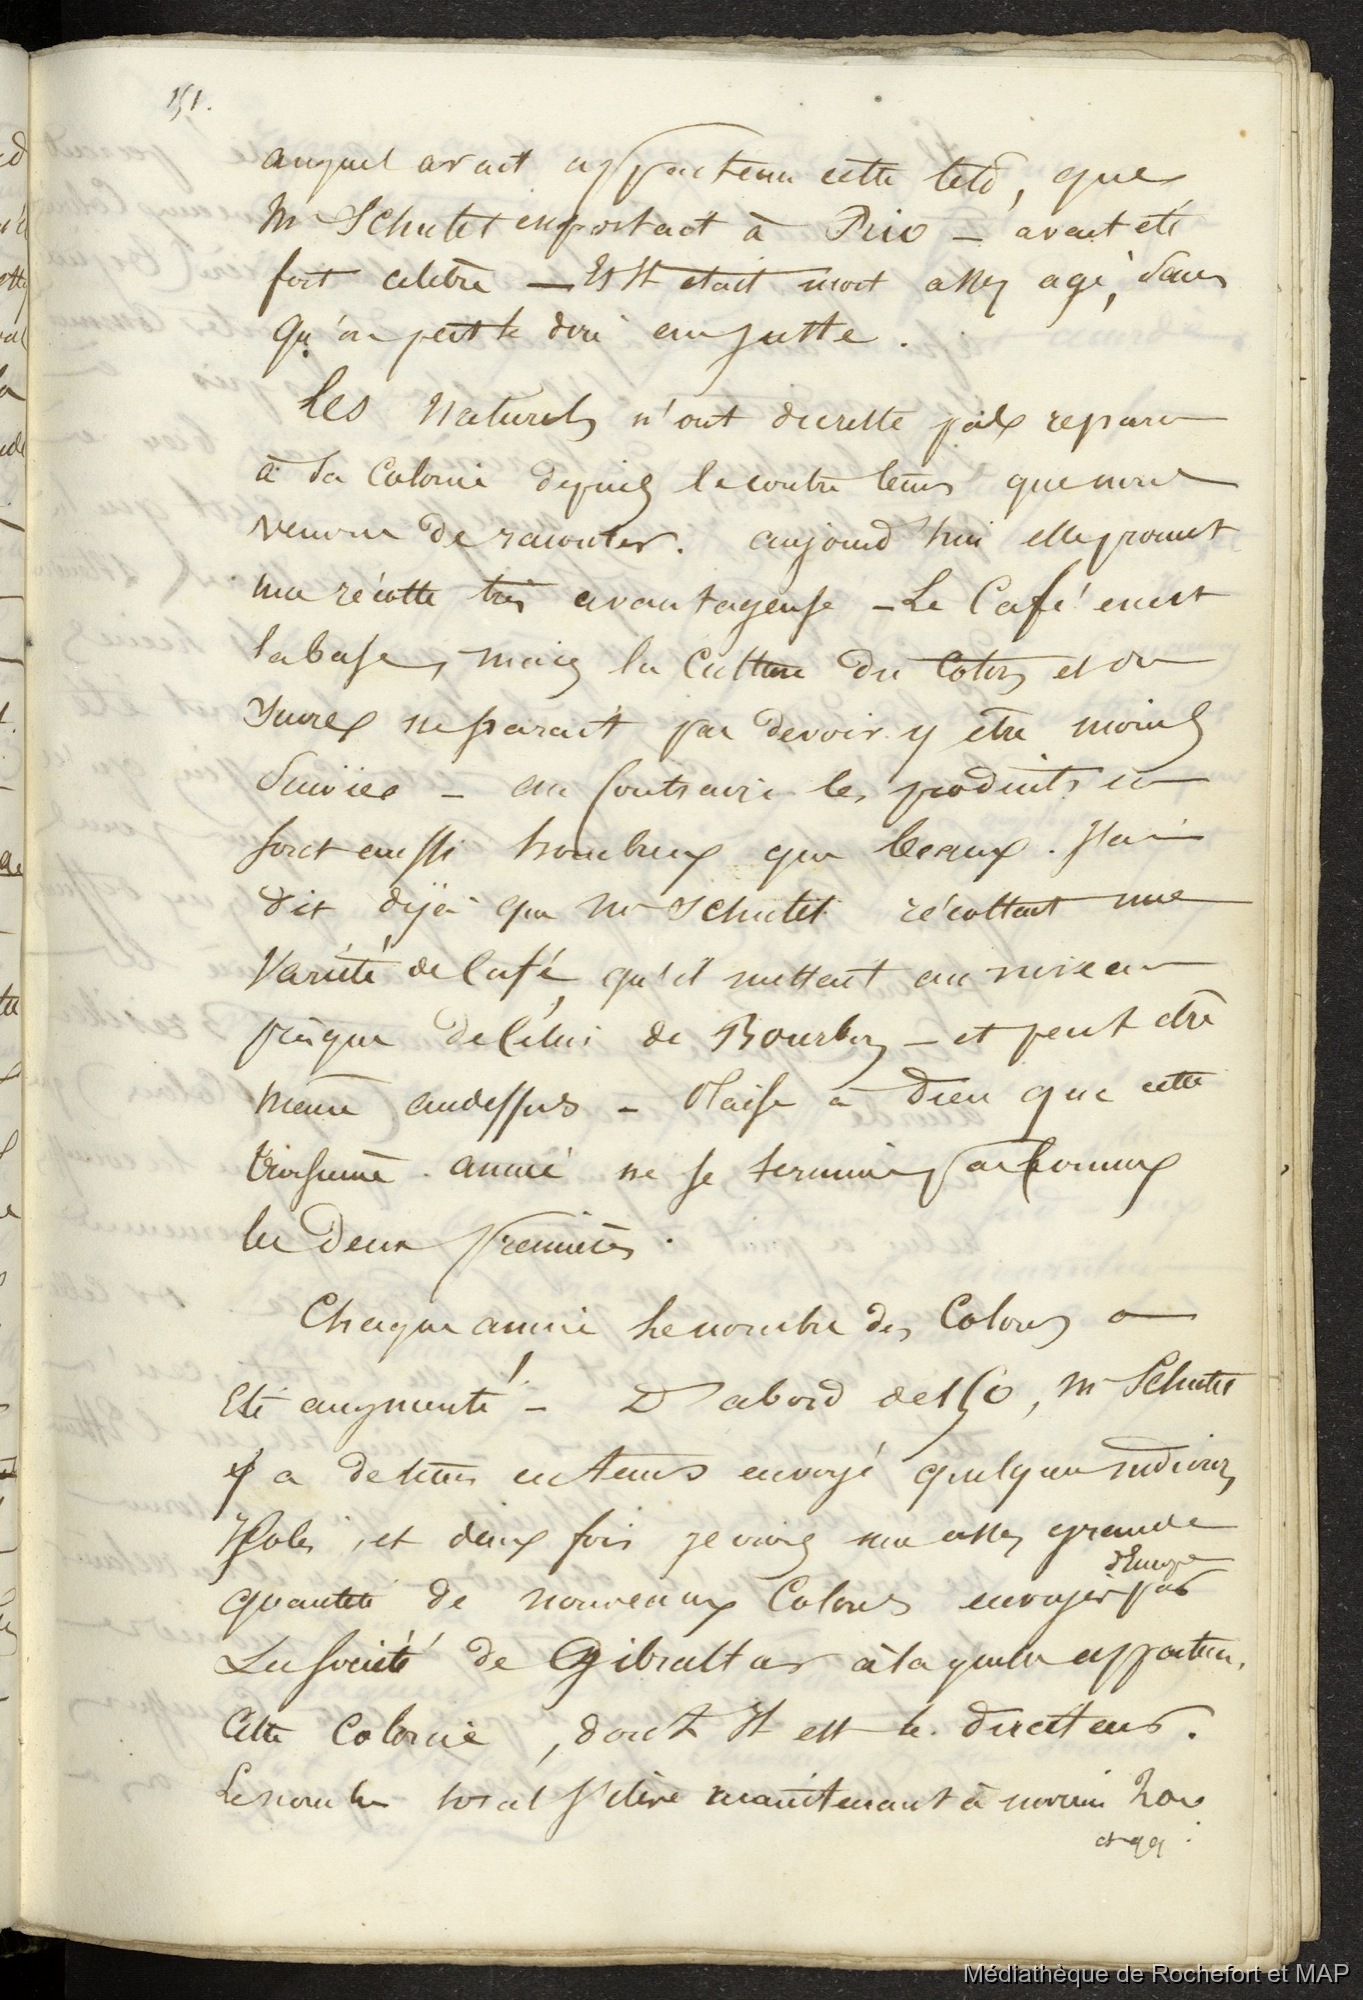 151.
auquel avait appartenu cette tête, que
Mr Schutet emportait à Rio – avait été
fort celebre – Et It etait mort assez agé, Sans
qu'on peut le dire en juste.
Les Naturels n'ont du reste pas reparu
à la Colonie depuis le contre tems que nous
venons de raconter. aujourd'hui elle promet
une récolte très avantageuse – Le Café en est
la base, mais la Culture du Coton et du
Sucre ne parait pas devoir y être moins
Suivies – au Contraire les produits en
sont aussi nombreux que beaux. J'ai
dit déjà que Mr Schutet récoltait une
Variété de Café, qu'il mettait au niveau
presque de Celui de Bourbon – et peut etre
même audessus – Plaise à Dieu que cette
troisieme année ne se termine pas comme
les Deux premières.
Chaque année le nombre des Colons a
Eté augmenté! – D'abord de 150, Mr Schutet
y a de tems en tems envoyé quelques individus
Isolés, et deux fois je vis une assez grande
quantité de nouveaux Colons envoyés d'Europe par
La Société de Gibraltar à laquelle appartien.
Cette Colonie, dont It est le directeur.
Le nombre total s'élève maintenant à environ